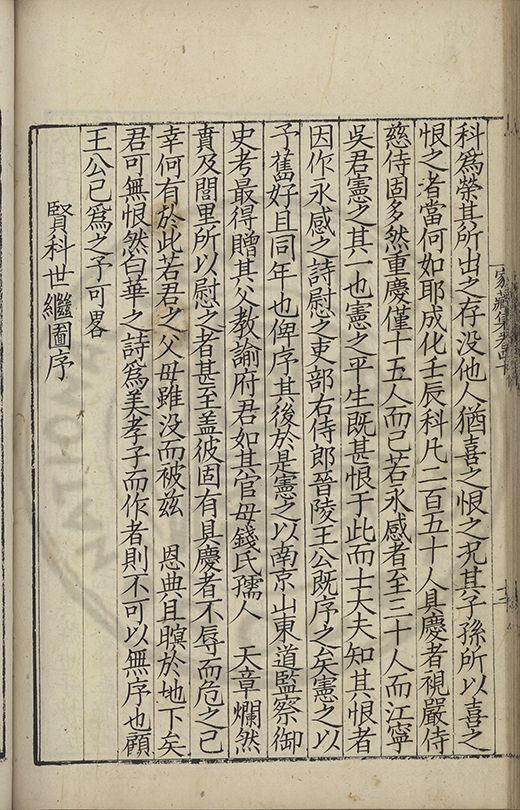 科為榮其所出之存没他人猶喜之恨之況其子孫所以喜之
恨之者當何如耶成化壬辰科凡二百五十人具慶者視嚴侍
慈侍固多然重慶僅十五人而已若永感者至三十人而江寧
吳君憲之其一也憲之平生既甚恨于此而士大夫知其恨者
因作永感之詩慰之吏部右侍郎晉陵王公既序之矣憲之以
予舊好且同年也俾序其後於是憲之以南京山東道監察御
史考最得贈其父教諭府君如其官母錢氏孺人　天章爛然
賁及閭里所以慰之者甚至盖彼固有具慶者不辱而危之已
幸何有於此若君之父母雖没而被兹　恩典且瞑於地下矣
君可無恨然白華之詩為美孝子而作者則不可以無序也顧
王公已為之予可畧
賢科世繼圖序
家藏集卷四十